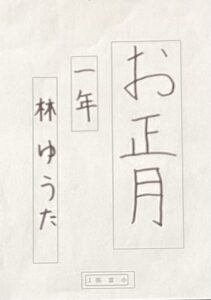 お正月
一年
林 ゆうた